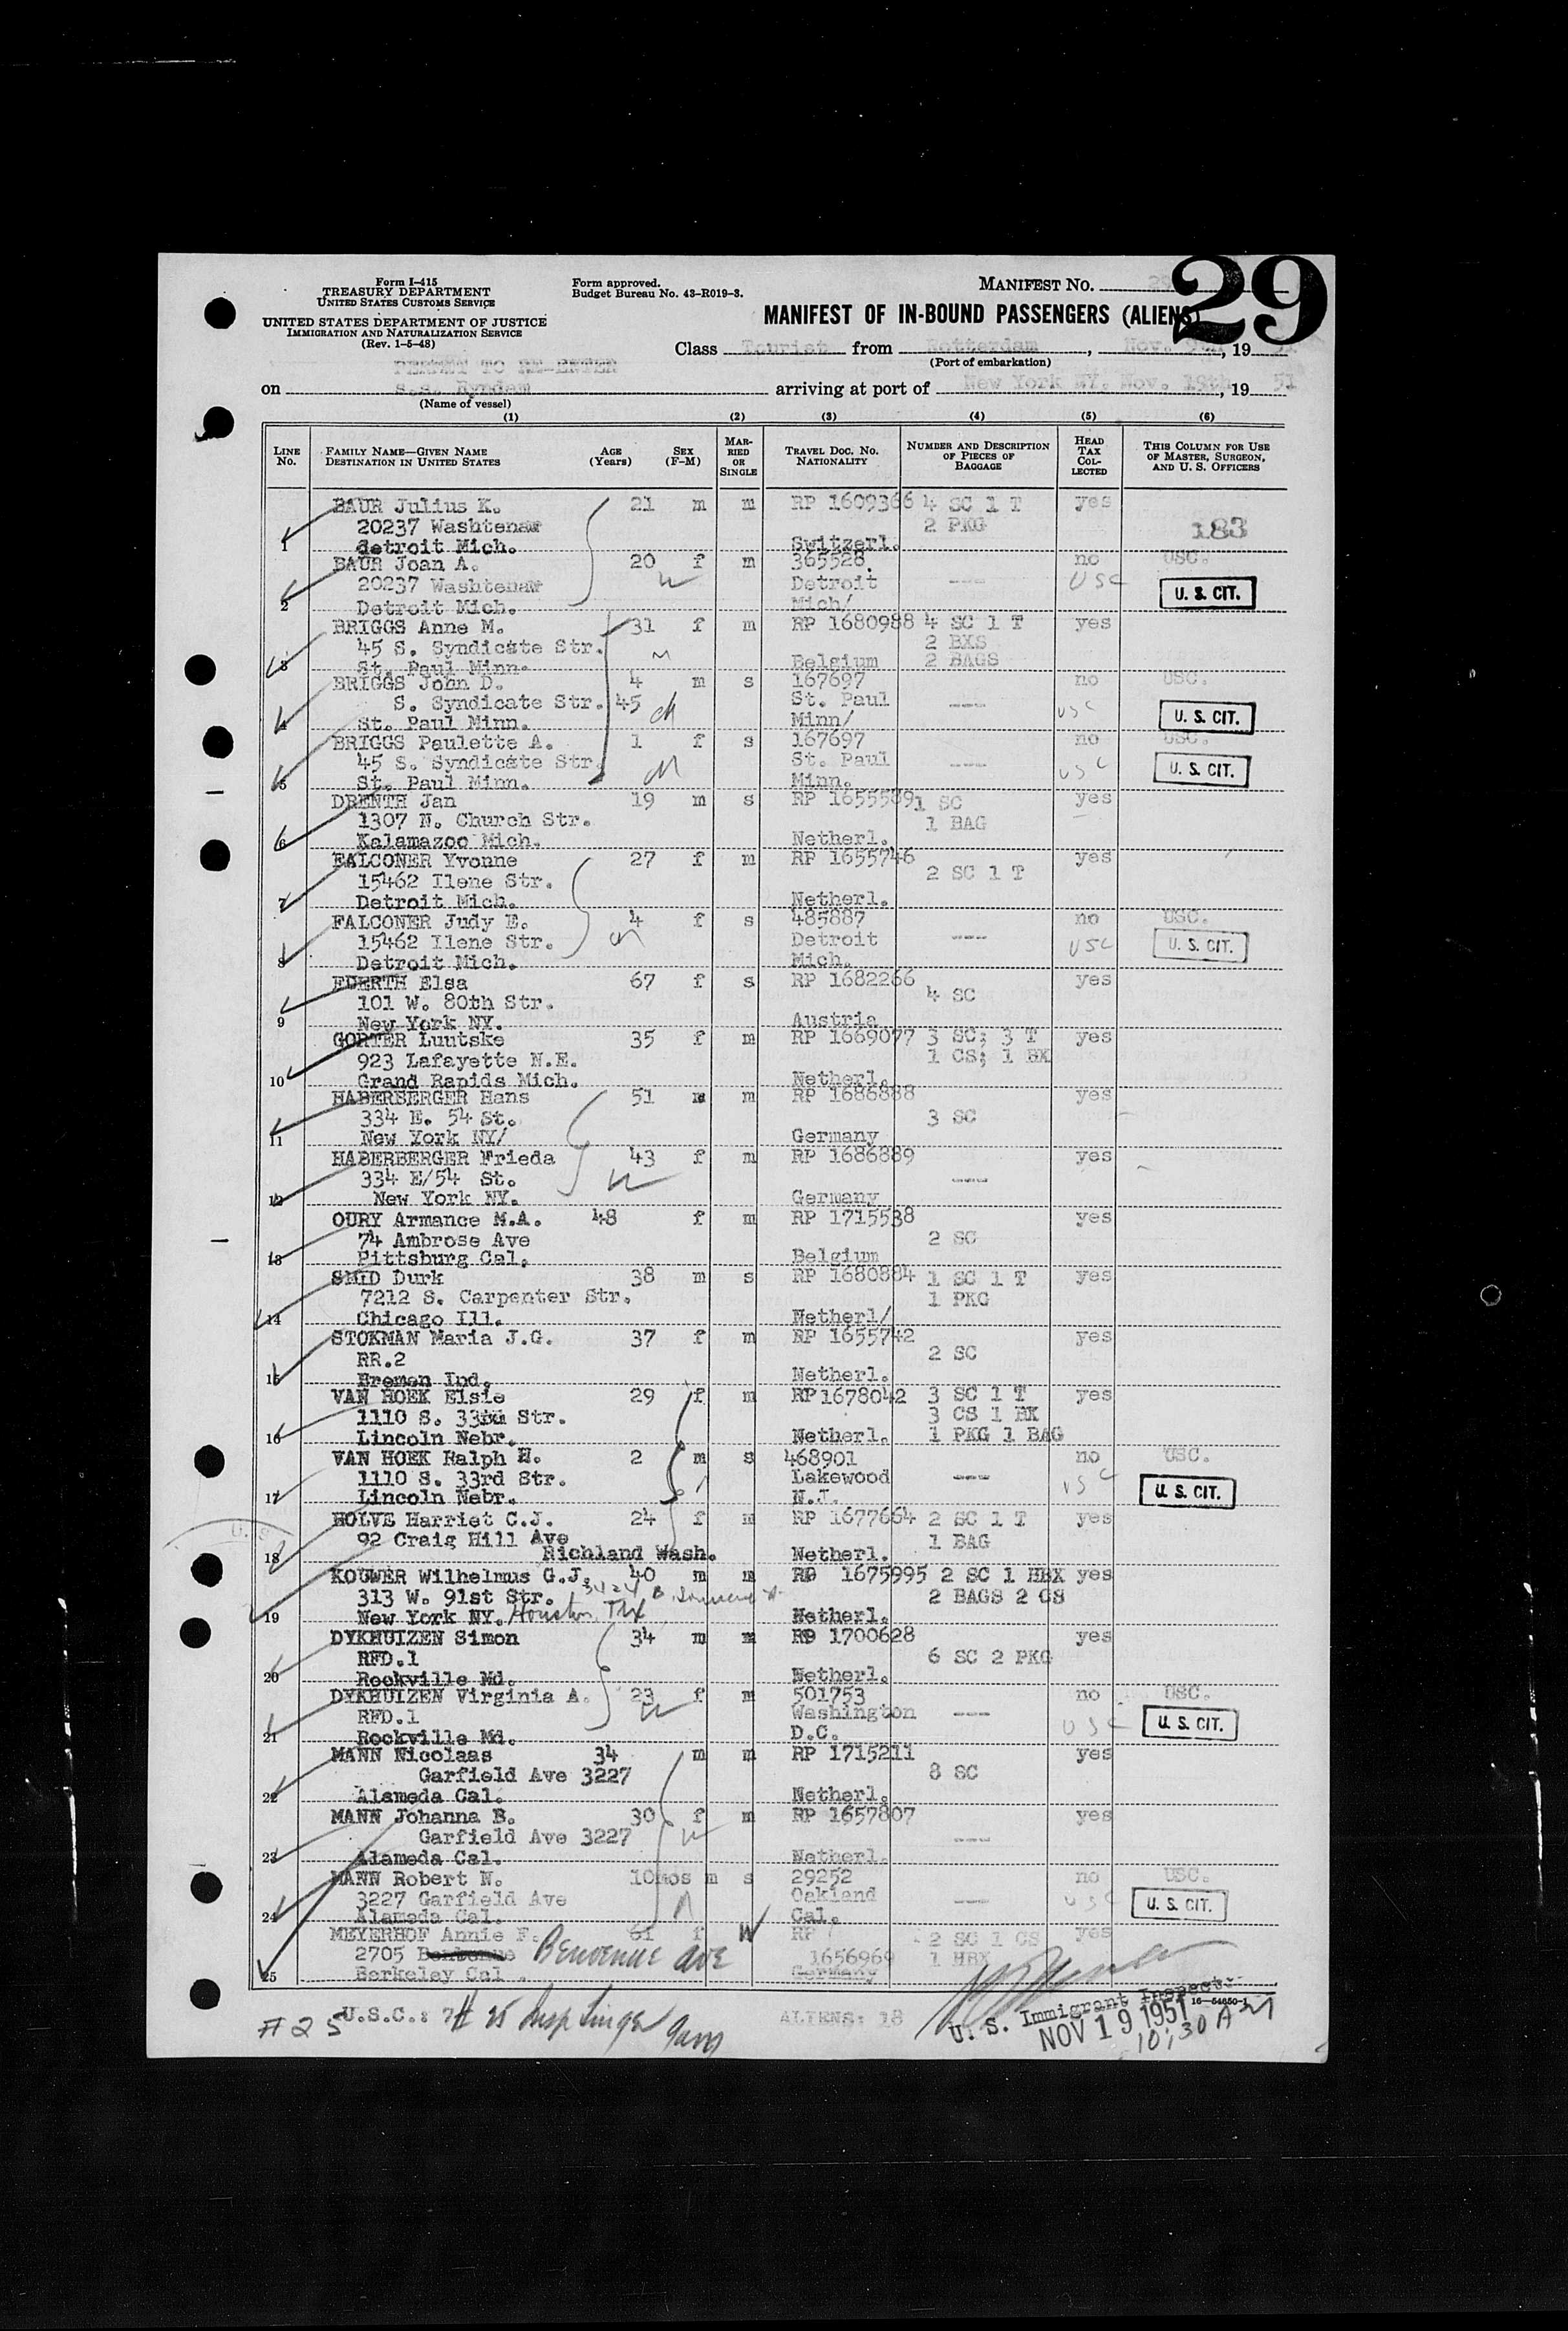 Form I-415
TREASURY DEPARTMENT
UNITED STATES CUSTOMS SERVICE
UNITED STATES DEPARTMENT OF JUSTICE
IMMIGRATION AND NATURALIZATION SERVICE
(Rev. 1-5-48)
Form approved.
Budget Bureau No. 43-R019-3.
MANIFEST NO. 29
29
MANIFEST OF IN-BOUND PASSENGERS (ALIENS)
Class Tourist from Rotterdam, Nov. , 19 51
(Port of embarkation)
PERMIT TO RE-ENTER
on s.s. Ryndam arriving at port of New York NY. Nov. 19th, 19 51
(Name of vessel)
(1) (2) (3) (4) (5) (6)
LINE NO. FAMILY NAME—GIVEN NAME DESTINATION IN UNITED STATES AGE (Years) SEX (F-M) MARRIED OR SINGLE TRAVEL DOC. NO. NATIONALITY NUMBER AND DESCRIPTION OF PIECES OF BAGGAGE HEAD TAX COLLECTED THIS COLUMN FOR USE OF MASTER, SURGEON, AND U. S. OFFICERS
BAUR Julius K. 21 m m RP 1609366 4 SC 1 T yes
20237 Washtenaw 2 PKG 183
1 detroit Mich. Switzerl.
BAUR Joan A. 20 f m 365528. no USC.
20237 Washtenaw W Detroit --- USC U. S. CIT.
2 Detroit Mich. Mich/
BRIGGS Anne M. 31 f m RP 1680988 4 SC 1 T yes
45 S. Syndicate Str. 2 BXS
3 St. Paul Minn. Belgium 2 BAGS
BRIGGS John D. 4 m s 167697 no USC.
S. Syndicate Str. 45 St. Paul --- USC U. S. CIT.
4 St. Paul Minn. Minn/
BRIGGS Paulette A. 1 f s 167697 no USC.
45 S. Syndicate Str. St. Paul --- USC U. S. CIT.
5 St. Paul Minn. Minn.
DRENTH Jan 19 m s RP 1655589 1 SC yes
1307 N. Church Str. 1 BAG
6 Kalamazoo Mich. Netherl.
FALCONER Yvonne 27 f m RP 1655746 yes
15462 Ilene Str. 2 SC 1 T
7 Detroit Mich. Netherl.
FALCONER Judy E. 4 f s 485887 no USC.
15462 Ilene Str. Detroit --- USC U. S. CIT.
8 Detroit Mich. Mich.
Elsa 67 f s RP 1682266 yes
101 W. 80th Str. 4 SC
9 New York NY. Austria
GORTER Luutske 35 f m RP 1669077 3 SC; 3 T yes
923 Lafayette N.E. 1 CS; 1 BX
10 Grand Rapids Mich. Netherl.
HABERBERGER Hans 51 m m RP 1686888 yes
334 E. 54 St. 3 SC
11 New York NY/ Germany
HABERBERGER Frieda 43 f m RP 1686889 yes
334 E/54 St. W ---
12 New York NY. Germany
OURY Armance M.A. 48 f m RP 1715538 yes
74 Ambrose Ave 2 SC
13 Pittsburg Cal. Belgium
SMID Durk 38 m s RP 1680884 1 SC 1 T yes
7212 S. Carpenter Str. 1 PKG
14 Chicago Ill. Netherl/
STOKMAN Maria J.G. 37 f m RP 1655742 yes
RR.2 2 SC
15 Bremen Ind. Netherl.
VAN HOEK Elsie 29 f m RP 1678042 3 SC 1 T yes
1110 S. 33rd Str. 3 CS 1 BX
16 Lincoln Nebr. Netherl. 1 PKG 1 BAG
VAN HOEK Ralph H. 2 m s 468901 no USC.
1110 S. 33rd Str. Lakewood --- USC U. S. CIT.
17 Lincoln Nebr. N.J.
HOLVE Harriet C.J. 24 f m RP 1677664 2 SC 1 T yes
92 Craig Hill Ave 1 BAG
18 Richland Wash. Netherl.
KOUWER Wilhelmus G.J. 40 m m RP 1675995 2 SC 1 HBX yes
313 W. 91st Str. 3424 2 BAGS 2 CS
19 New York NY. Houston Tex Netherl.
DYKHUIZEN Simon 34 m m RP 1700628 yes
RFD.1 6 SC 2 PKG
20 Rockville Md. Netherl.
DYKHUIZEN Virginia A. 23 f m 501753 no USC.
RFD.1 W Washington --- USC U. S. CIT.
21 Rockville Md. D.C.
MANN Nicolaas 34 m m RP 1715211 yes
Garfield Ave 3227 8 SC
22 Alameda Cal. Netherl.
MANN Johanna B. 30 f m RP 1657807 yes
Garfield Ave 3227 W ---
23 Alameda Cal. Netherl.
MANN Robert N. 10mos m s 29252 no USC.
3227 Garfield Ave Oakland --- USC U. S. CIT.
24 Alameda Cal. Cal.
MEYERHOF Annie F. 61 f W RP 2 SC 1 CS yes
2705 Benvenue Ave 1656969 1 HBX
25 Berkeley Cal. Germany
# 25 U.S.C.: 7 # 25 Insp Singer ALIENS: 18
U. S. Immigrant Inspector 16—54650-1
NOV 19 1951
10:30 AM